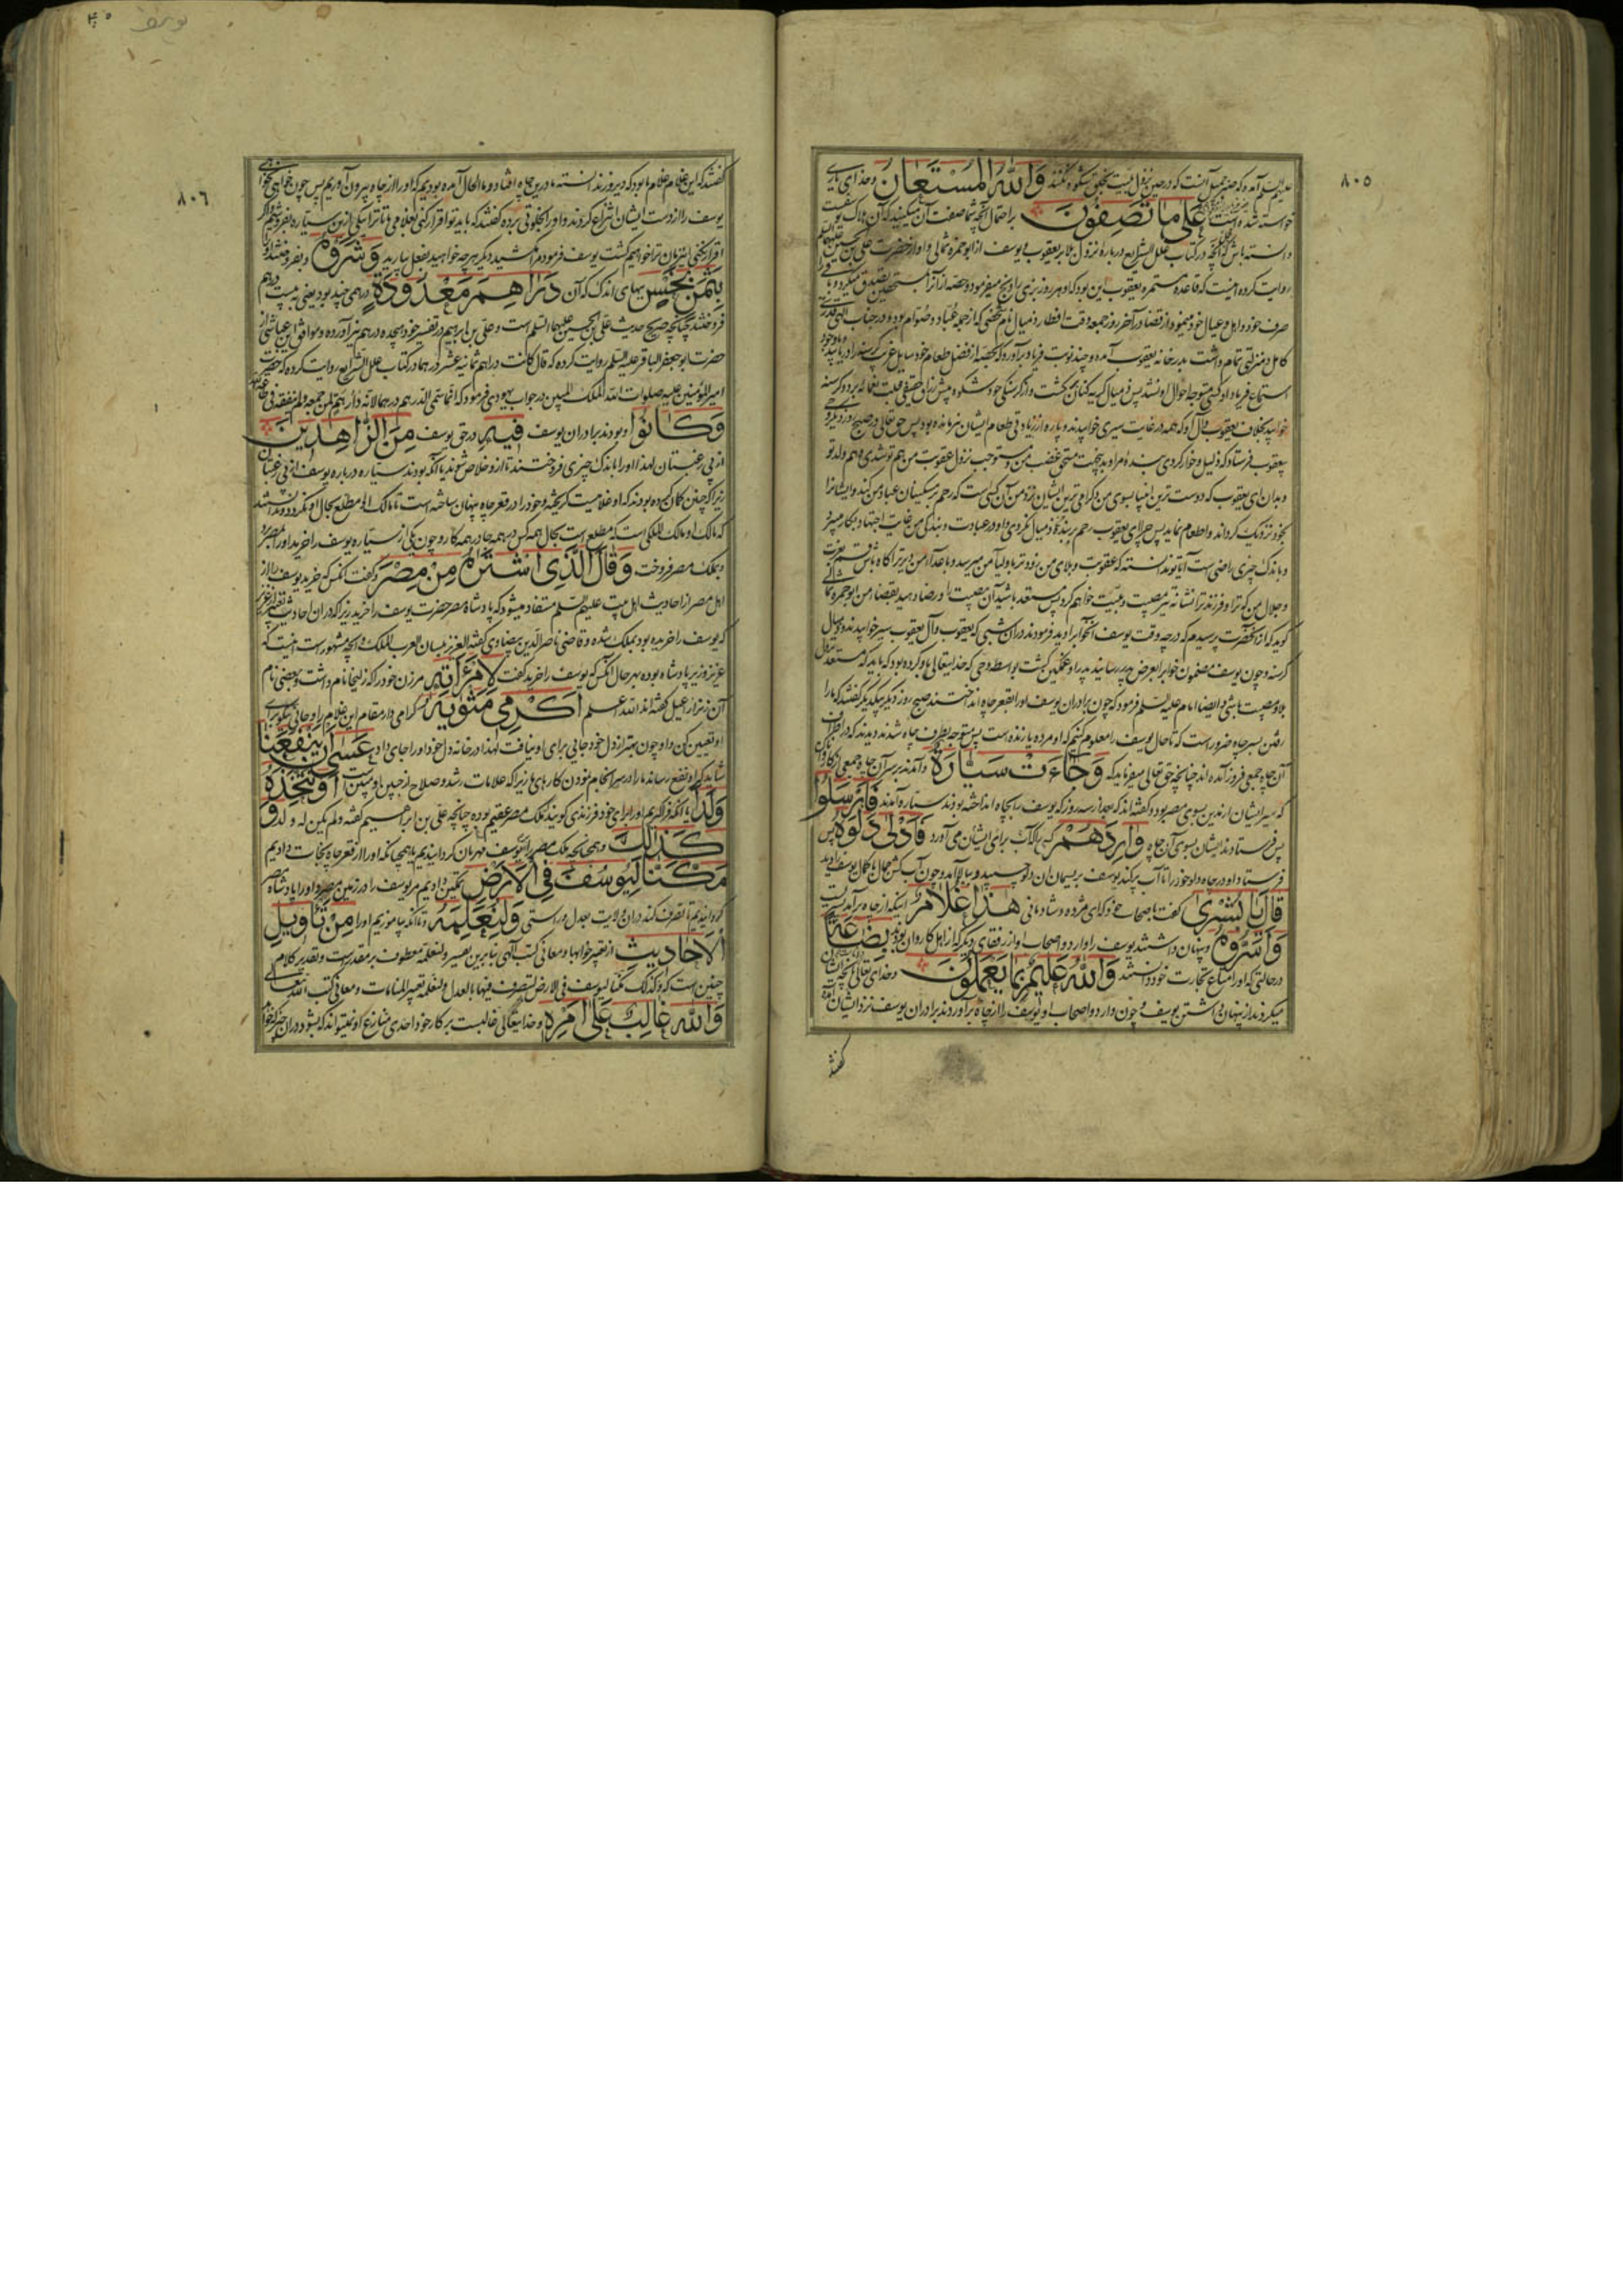 ٨٠٥
علیه السلم آمده که صبر جمیل آنست که در حین نزول بلیت بخلق شکوه نکنند وَاللّٰهُ الْمُسْتَعَانُ و خدای یاری
خواسته شده است عَلٰی مَا تَصِفُونَ بر احتمال آنچه شما صفت آن میکنید که آن هلاک یوسفست
دانسته باش که آنچه در کتاب علل الشرایع درباره نزول بلا بر یعقوب و یوسف از ابو حمزه ثمالی و او از حضرت علی بن الحسین علیهما السلم
روایت کرده اینست که قاعده مستمره یعقوب این بود که او هر روز بزی را ذبح میفرمود و حصه از آنرا بمستحقین تصدق میکرد و باقی را
صرف خود و اهل و عیال خود مینمود از قضا در آخر روز جمعه وقت افطار ذمیال نام شخصی که از جمله عُبّاد و صُوّام بود و در جناب الهی قدری
کامل و منزلتی تمام داشت بدر خانه یعقوب آمده و چند نوبت فریاد برآورد که حصه از فضل طعام خود سایل غریب گرسنه را دریابید با وجود
استماع فریاد او کسی متوجه احوال او نشد پس ذمیال گریه کنان برگشت و از گرسنگی خود شکوه پیش رزاق حقیقی جلت نعمائه برد و گرسنه
خوابید بخلاف یعقوب و آل او که همه در غایت سیری خوابیدند و پاره از زیادتی طعام ایشان نیز مانده بود پس حق تعالی در صبح روز دیگر وحی
بیعقوب فرستاد که ذلیل و خوار کردی بنده مرا و بدینجهت مستحق غضب من و مستوجب نزول عقوبت من هم تو شدی و هم ولد تو
و بدان ای یعقوب که دوست ترین انبیا بسوی من و گرامی ترین ایشان نزد من آن کسی است که رحم بر مسکینان عباد من کند و ایشانرا
بخود نزدیک گرداند و اطعام نماید پس چرا ای یعقوب رحم بر بنده ذمیال نکردی و او در عبادت و بندگی من غایت اجتهاد بکار میبرد
و باندک چیزی راضی است آیا تو ندانسته که عقوبت و بلای من زودتر باولیا من میرسد و باعدا من دیرتر آگاه باش قسم بعزت
و جلال من که ترا و فرزند ترا نشانه تیر مصیبت و بلیت خواهم کرد پس مستعد باشید آن مصیبت را و رضا دهید بقضا من ابو حمزه ثمالی
گوید که از آنحضرت پرسیدم که در چه وقت یوسف آنخواب را دید فرمودند در آن شبی که یعقوب و آل یعقوب سیر خوابیدند و ذمیال
گرسنه و چون یوسف مضمون خواب را بعرض پدر رسانید پدر او غمگین گشت بواسطه وحی که خدایتعالی باو کرده بود که باید که مستعد نزول
بلا و مصیبت باشی و ایضا امام علیه السلم فرمود که چون برادران یوسف او را بقعر چاه انداختند صبح روز دیگر بیکدیگر گفتند که ما را
رفتن بسر چاه ضرور است که تا حال یوسف را معلوم کنیم که او مرده یا زنده است پس متوجه بطرف چاه شدند دیدند که در اطراف
آن چاه جمعی فرود آمده اند چنانچه حق تعالی میفرماید که وَجَاءَتْ سَیَّارَةٌ و آمدند بر سر آن چاه جمعی از کاروان
که سیر ایشان از مدین بسوی مصر بود و گفته اند که بعد از سه روز که یوسف را بچاه انداخته بودند سیاره آمدند فَاَرْسَلُوا
پس فرستادند ایشان بسوی آن چاه وَارِدَهُمْ کسی را که آب برای ایشان می آورد فَاَدْلٰی دَلْوَهُ پس
فرستاد او در چاه دلو خود را تا آب پر کند یوسف بریسمان آن دلو چسپید و ببالا آمد و چون آب کش جمال با کمال یوسف را دید
قَالَ یَا بُشْرٰی گفت باصحاب خود که ای مژده و شادمانی هٰذَا غُلَامٌ اینکه از چاه برآمد پسریست
وَاَسَرُّوهُ و پنهان داشتند یوسف را وارد و اصحاب او از رفقای دیگر که از اهل کاروان بودند بِضَاعَةً
در حالتی که او را متاع تجارت خود دانستند وَاللّٰهُ عَلِیمٌ بِمَا یَعْمَلُونَ و خدای تعالی داناست بآنچه ایشان
میکردند از پنهان داشتن یوسف و چون وارد و اصحاب او یوسف را از چاه برآوردند برادران یوسف نزد ایشان آمده
گفتند
٨٠٦
گفتند که این غلام غلام ما بود که دیروز ندانسته ما درین چاه افتاد و ما الحال آمده بودیم که او را از چاه بیرون آوریم پس چون خواهی نخواهی
یوسف را از دست ایشان انتزاع کردند و او را بخلوتی برده گفتند که باید تو اقرار کنی بغلامی ما تا ترا بیکی ازین سیاره بفروشیم و اگر
اقرار نکنی البته ترا خواهیم کشت یوسف فرمود مرا مکشید دیگر هر چه خواهید بفعل بیارید وَشَرَوْهُ و بفروختند او را
بِثَمَنٍ بَخْسٍ ببهای اندک که آن دَرَاهِمَ مَعْدُودَةٍ درهمی چند بود یعنی به بیست درهم
فروختند چنانچه صریح حدیث علی بن الحسین علیهما السلم است و علی بن ابراهیم در تفسیر خود هجده درهم نیز آورده و موافق این عیاشی از
حضرت ابو جعفر الباقر علیه السلم روایت کرده که قال کانت دراهم ثمانیه عشر درهما در کتاب علل الشرایع روایت کرده که حضرت
امیر المؤمنین علیه صلوات الله الملک المبین در جواب یهودی فرمود که انما سمی الدرهم درهما لانه دار هم من جمعه و لم ینفقه فی طاعة الله
وَکَانُوا و بودند برادران یوسف فِیهِ در حق یوسف مِنَ الزَّاهِدِینَ
از بی رغبتان لهذا او را باندک چیزی فروختند تا ازو خلاص شوند یا آنکه بودند سیاره درباره یوسف از بی رغبتان
زیرا که چنین گمان کرده بودند که او غلامیست گریخته و خود را در قعر چاه پنهان ساخته است تا مالک او مطلع بحال او نگردد و ندانستند
که مالک او مالک الملکی است که مطلع است بحال همه کس در همه جا در همه کار و چون یکی از سیاره یوسف را خرید او را بمصر برد
و بملک مصر فروخت وَقَالَ الَّذِی اشْتَرٰیهُ مِنْ مِصْرَ و گفت آنکس که خرید یوسف را از
اهل مصر از احادیث اهل بیت علیهم السلم مستفاد میشود که پادشاه مصر حضرت یوسف را خرید زیرا که در آن احادیث تعبیر از عزیز
که یوسف را خریده بود بملک شده و قاضی ناصر الدین بیضاوی گفته العزیز بلسان العرب الملک و آنچه مشهور است اینست که
عزیز وزیر پادشاه بوده بهر حال آنکس که یوسف را خرید گفت لِامْرَأَتِهِ مر زن خود را که زلیخا نام داشت و بعضی نام
آن زن را راعیل گفته اند الله اعلم اَکْرِمِی مَثْوٰیهُ گرامی دار مقام این غلام را و جائی نیکو برای
او تعیین کن و او چون بهتر از دل خود جائی برای او نیافت لهذا در خانه دل خود او را جای داد عَسٰی اَنْ یَنْفَعَنَا
شاید که او نفع رساند ما را در سرانجام نمودن کارهای ما زیرا که علامات رشد و صلاح از جبین او مبین است اَوْ نَتَّخِذَهُ
وَلَدًا یا آنکه فرا گیریم او را برای خود فرزندی گویند که ملک مصر عقیم بوده چنانچه علی بن ابراهیم گفته و لم یکن له ولد وَ
کَذٰلِکَ و همچنانکه ملک مصر را بیوسف مهربان گردانیدیم یا همچنانکه او را از قعر چاه نجات دادیم
مَکَّنَّا لِیُوسُفَ فِی الْاَرْضِ تمکین دادیم مر یوسف را در زمین مصر و او را پادشاه مصر
گردانیدیم تا تصرف کند در آن ولایت بعدل و راستی وَلِنُعَلِّمَهُ و تا آنکه بیاموزیم او را مِنْ تَأْوِیلِ
الْاَحَادِیثِ از تعبیر خوابها و معانی کتب الهی بنابرین تفسیر و لنعلمه معطوف بر مقدر است و تقدیر کلام
چنین است که و کذلک مکنا لیوسف فی الارض لیتصرف فیها بالعدل و لنعلمه تعبیر المنامات و معانی کتب الله تعالی
وَاللّٰهُ غَالِبٌ عَلٰی اَمْرِهِ و خدایتعالی غالبست بر کار خود احدی منازع او نمیتواند که بشود در آن چیز که خواهد